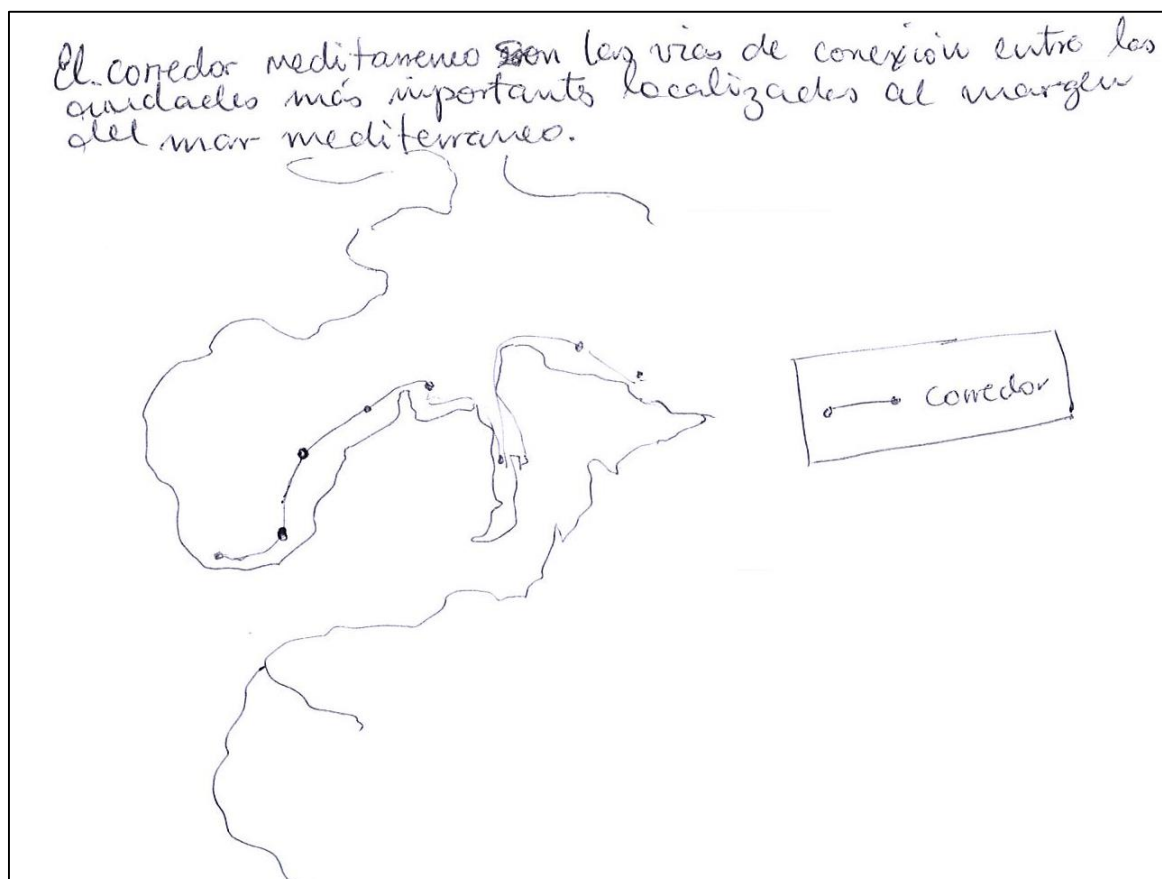 El corredor meditarreneo son las vias de conexión entre las
ciudades más importants localizades al margen
del mar mediterraneo.
corredor